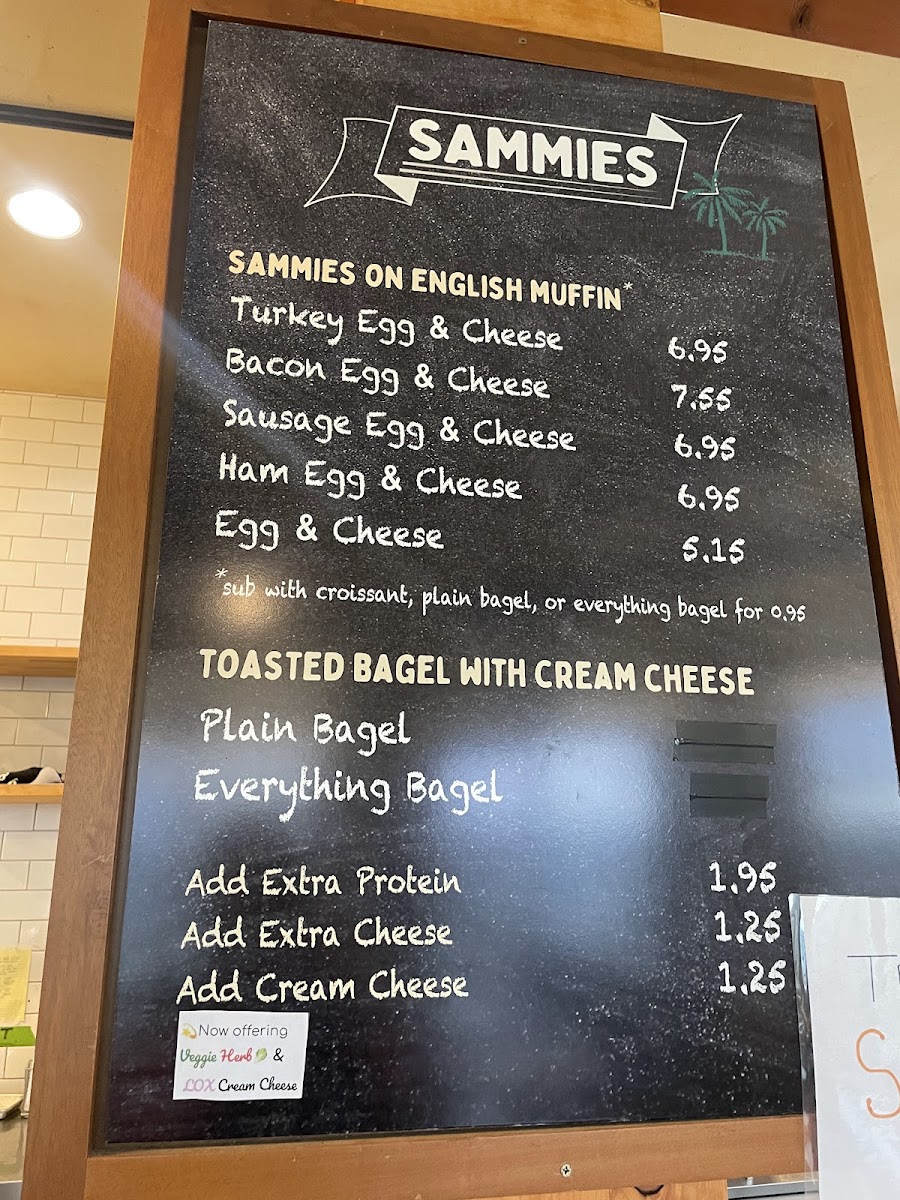 SAMMIES
SAMMIES ON ENGLISH MUFFIN*
Turkey Egg & Cheese 6.95
Bacon Egg & Cheese 7.55
Sausage Egg & Cheese 6.95
Ham Egg & Cheese 6.95
Egg & Cheese 5.15
*sub with croissant, plain bagel, or everything bagel for 0.95
TOASTED BAGEL WITH CREAM CHEESE
Plain Bagel
Everything Bagel
Add Extra Protein 1.95
Add Extra Cheese 1.25
Add Cream Cheese 1.25
💫Now offering
Veggie Herb🥬 &
LOX Cream Cheese